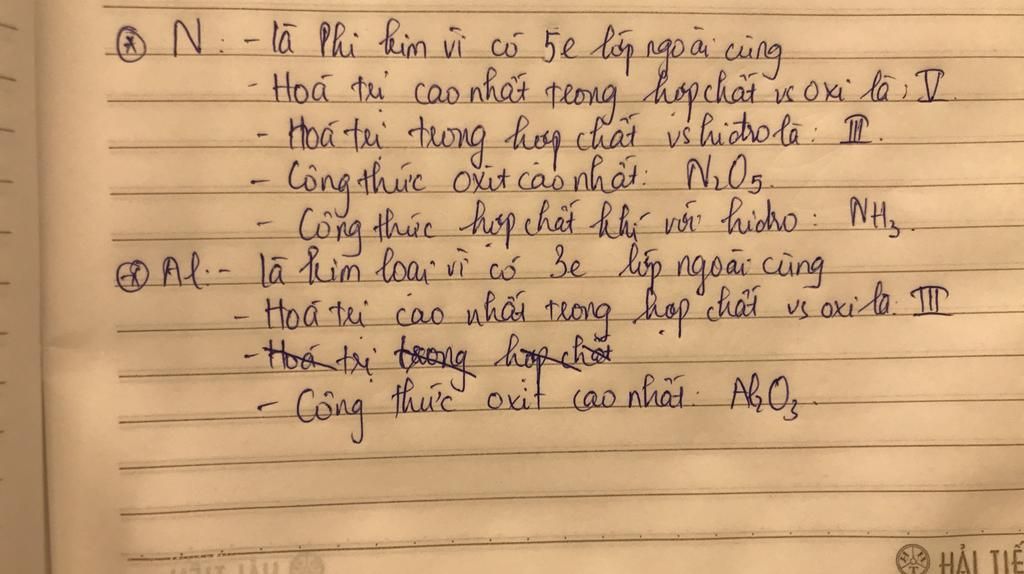 ⊛ N: - là Phi kim vì có 5e lớp ngoài cùng
- Hoá trị cao nhất trong hợp chất vs oxi là: V.
- Hoá trị trong hợp chất vs hidro là: III.
- Công thức oxit cao nhất: N₂O₅.
- Công thức hợp chất khí với hidro: NH₃.
⊛ Al: - là kim loại vì có 3e lớp ngoài cùng
- Hoá trị cao nhất trong hợp chất vs oxi là: III
- Hoá trị trong hợp chất
- Công thức oxit cao nhất: Al₂O₃.
HẢI TIẾ